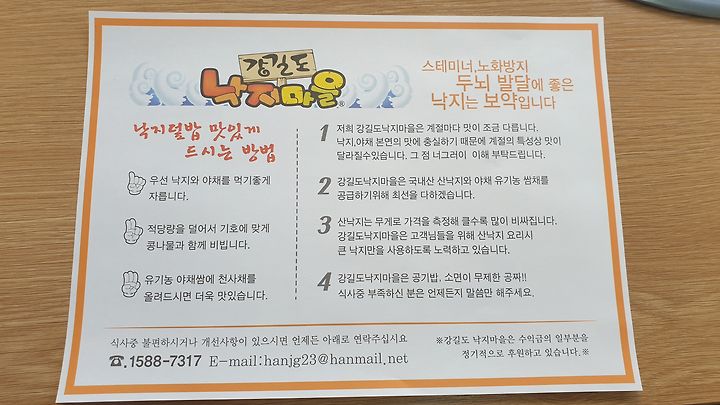 강길도
낙지마을®
스테미너,노화방지
두뇌 발달에 좋은
낙지는 보약입니다
낙지덮밥 맛있게
드시는 방법
우선 낙지와 야채를 먹기좋게
자릅니다.
적당량을 덜어서 기호에 맞게
콩나물과 함께 비빕니다.
유기농 야채쌈에 천사채를
올려드시면 더욱 맛있습니다.
1 저희 강길도낙지마을은 계절마다 맛이 조금 다릅니다.
낙지,야채 본연의 맛에 충실하기 때문에 계절의 특성상 맛이
달라질수있습니다. 그 점 너그러이 이해 부탁드립니다.
2 강길도낙지마을은 국내산 산낙지와 야채 유기농 쌈채를
공급하기위해 최선을 다하겠습니다.
3 산낙지는 무게로 가격을 측정해 클수록 많이 비싸집니다.
강길도낙지마을은 고객님들을 위해 산낙지 요리시
큰 낙지만을 사용하도록 노력하고 있습니다.
4 강길도낙지마을은 공기밥. 소면이 무제한 공짜!!
식사중 부족하신 분은 언제든지 말씀만 해주세요.
식사중 불편하시거나 개선사항이 있으시면 언제든 아래로 연락주십시요
☎.1588-7317 E-mail:hanjg23@hanmail.net
※강길도 낙지마을은 수익금의 일부분을
정기적으로 후원하고 있습니다.※